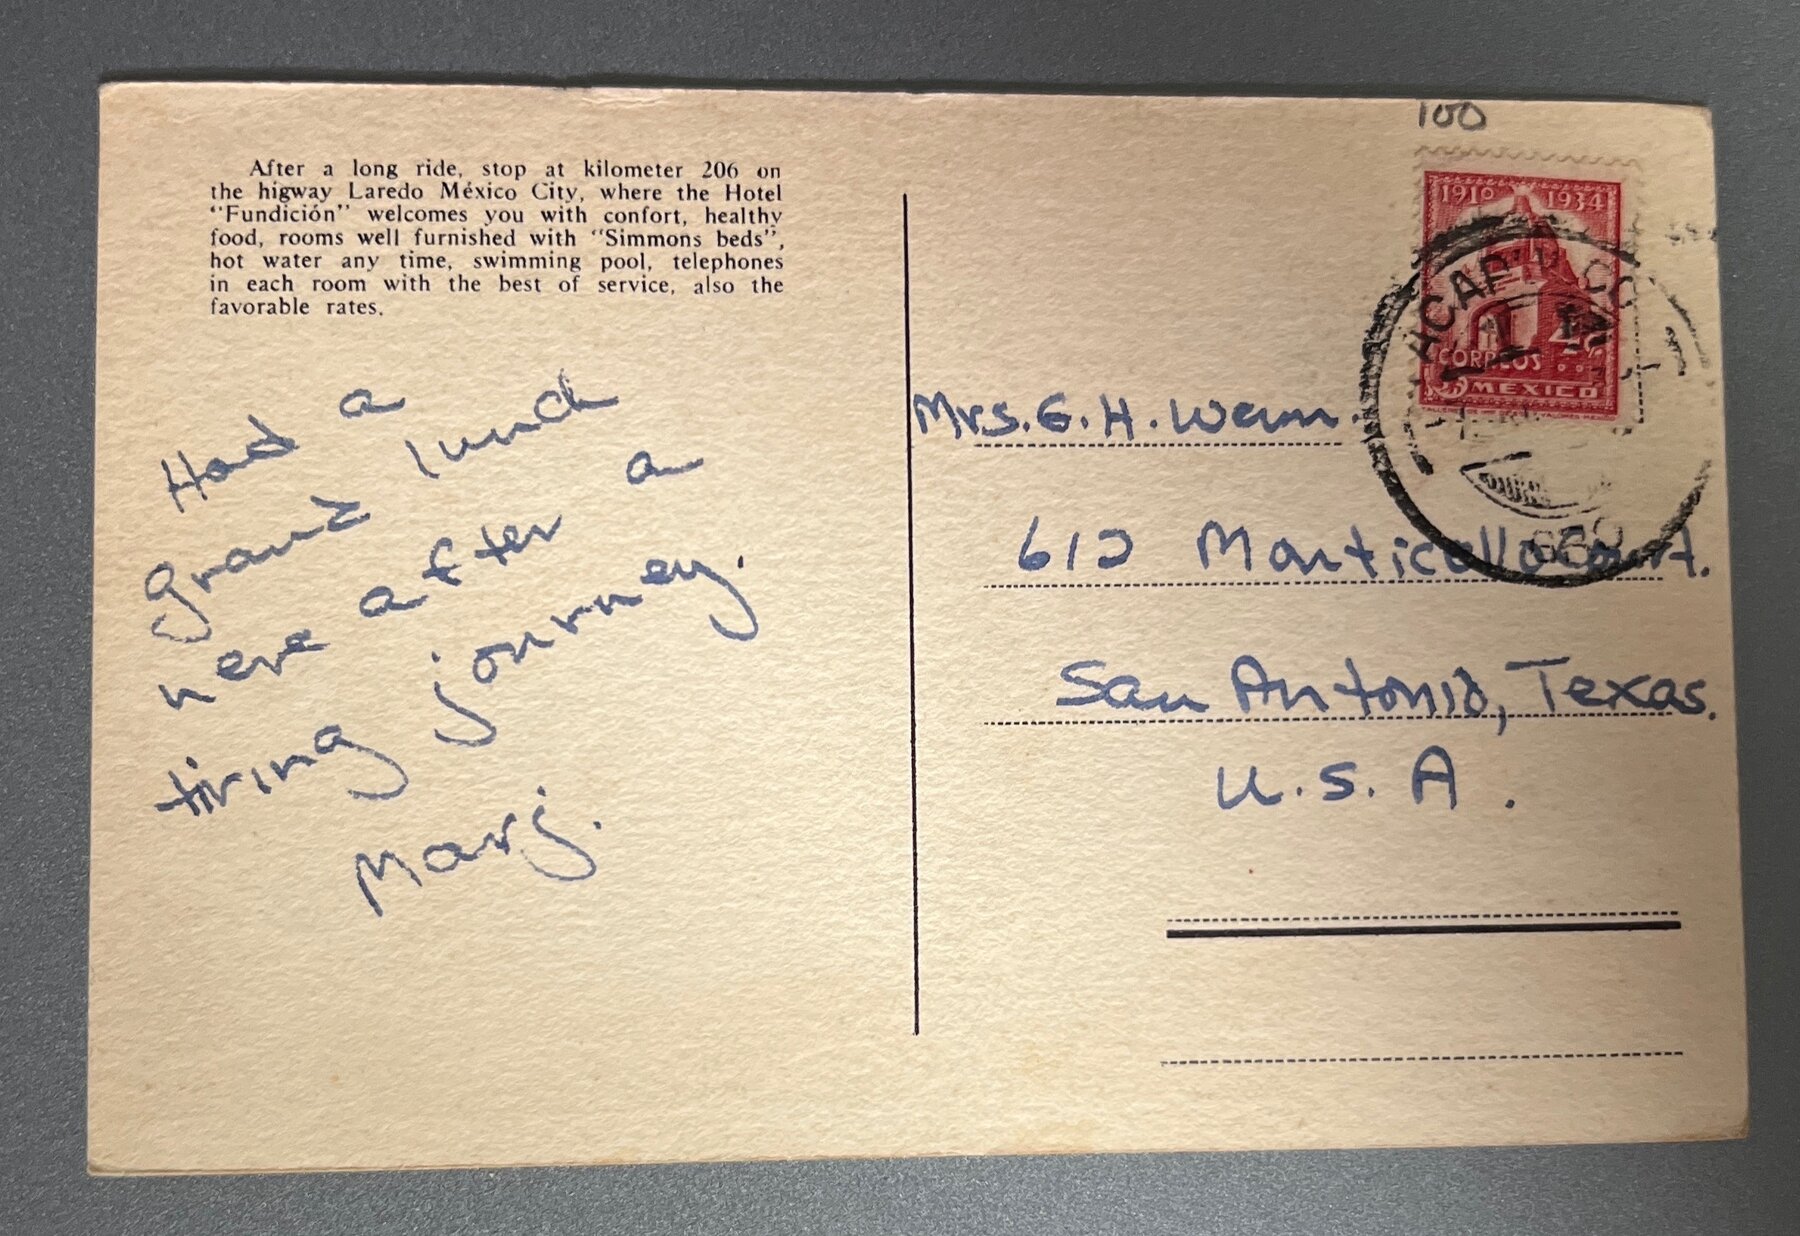 After a long ride, stop at kilometer 206 on
the higway Laredo México City, where the Hotel
"Fundición" welcomes you with confort, healthy
food, rooms well furnished with "Simmons beds",
hot water any time, swimming pool, telephones
in each room with the best of service, also the
favorable rates.
Had a
grand lunch
here after a
tiring journey.
Marj.
100
1910 1934
CORREOS
MEXICO
Mrs. G. H.
612 Monticello Court.
San Antonio, Texas.
U.S.A.